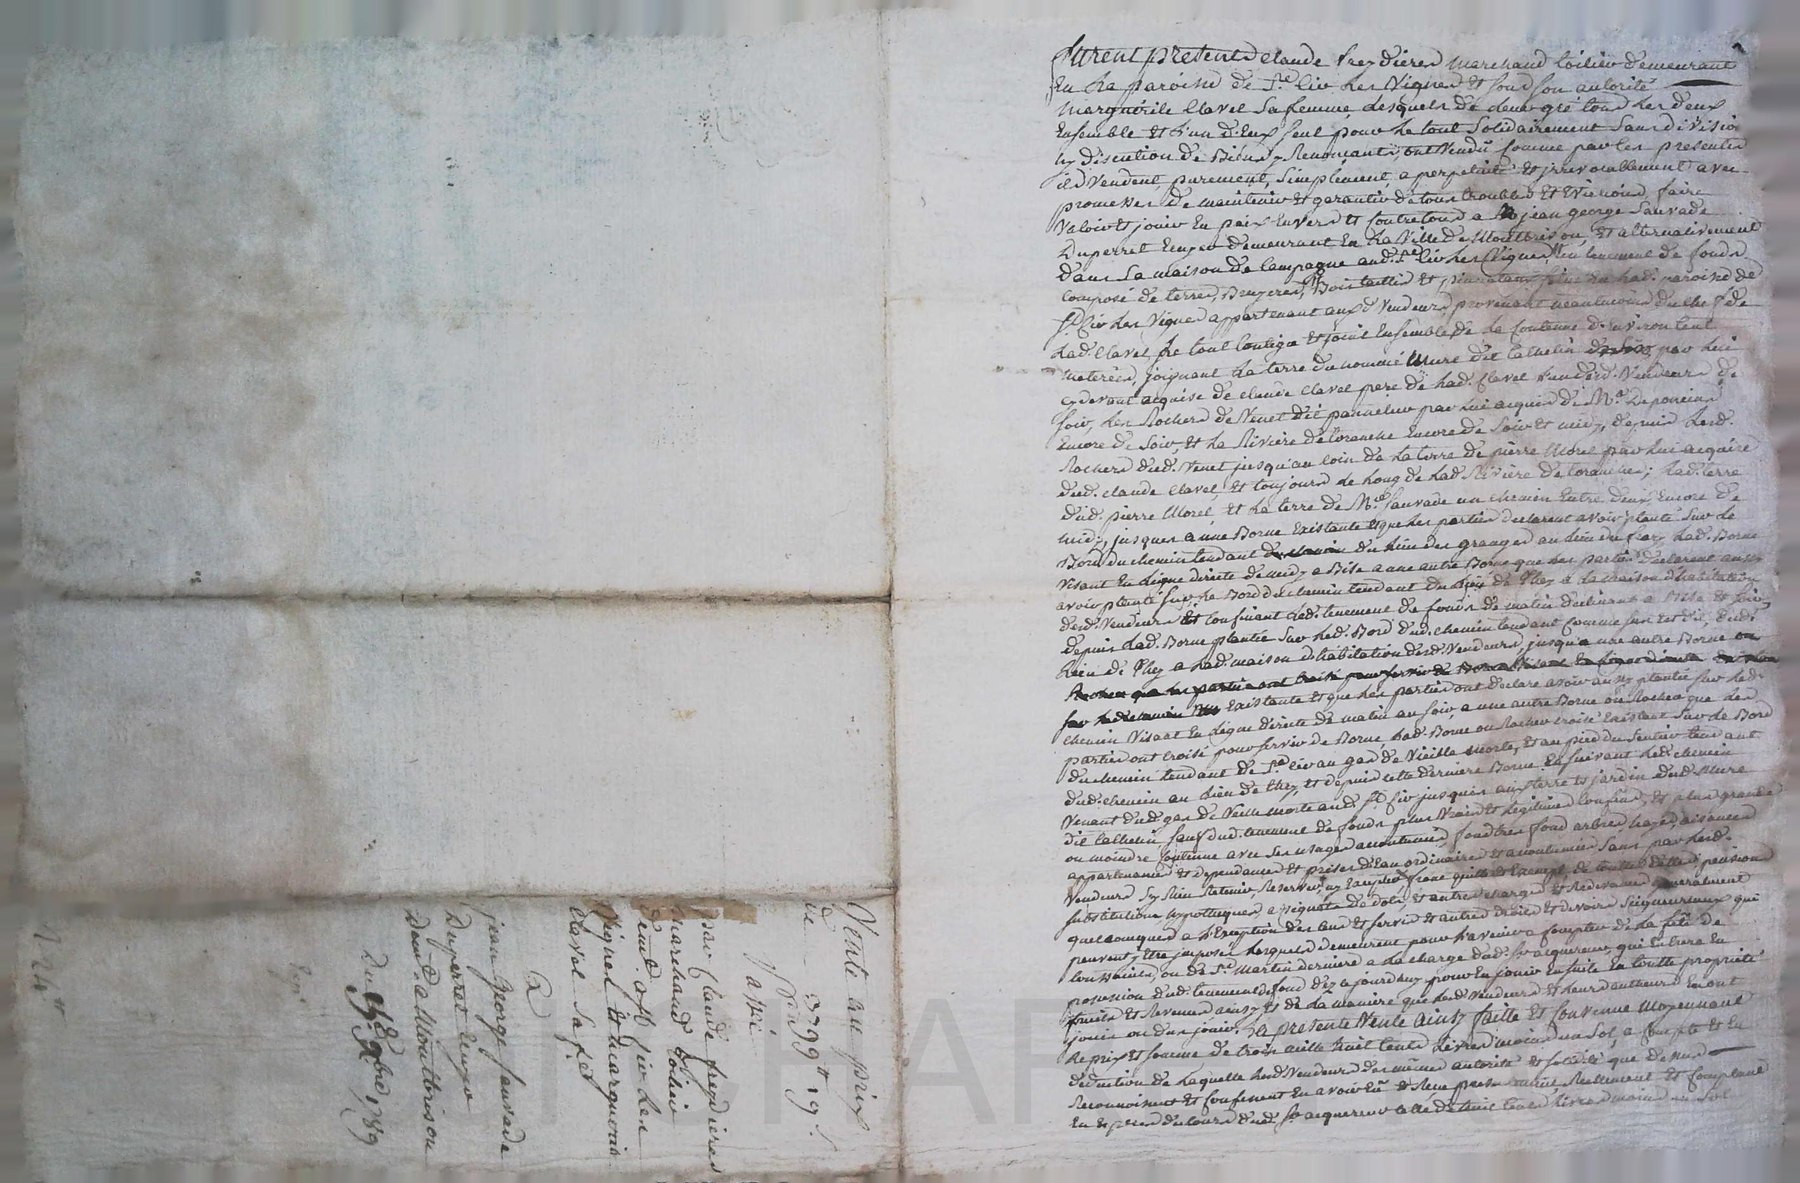 furent presents Claude freydieres marchand toilier demeurant
En la paroisse de St. Cir les Vignes et sous son autorité
Marguérite Clavel sa femme, lesquels de leur gré tous les deux
Ensemble et l'un d'Eux seul pour le tout solidairement sans division
ny discution de Biens y Renonçants, ont Vendû comme par les presentes
ils Vendent, purement, simplement a perpetuité et jrrevocablement avec
promesses de maintenir et garantir de tous troubles et Evictions, faire
Valoir et jouir En paix Envers et contre tous a jean george Sauvade
Duperret demeurant En la Ville de Montbrison, et alternativement
dans sa maison de Campagne aud. St. Cir les Vignes, un tenement de fonds
composé de terres, Bruyeres, Bois taillis et paroisse de
St. Cir les Vignes appartenant auxd. Vendeurs provenant neanmoins du chef de
lad. Clavel, le tout Contigu et joint Ensemble, de la contenue d'environ cent
meterées, joignant la terre du nommé Mure dit Cathelin par lui
cy devant acquise de Claude Clavel pere de lad. Clavel Vendeurs de
soir, les Rochers de Venet dit par lui acquis de Mr.
Encore de soir, et la Riviere de Coranche Encore de soir et midy, depuis lesd.
Rochers dud. Venet jusqu'au coin de la terre de pierre Morel par lui acquise
dud. Claude Clavel, et toujours le long de lad. Riviere de Coranche; lad. terre
dud. pierre Morel, et la terre de Mr. Sauvade un chemin Entre deux Encore de
midy, jusques a une Borne Existante et que les parties declarent avoir planté sur le
Bord du chemin tendant du lieu des granges au lieu lad. Borne
Visant En ligne directe de midy a Bise a une autre Borne que les parties declarent aussy
avoir planté sur le Bord du chemin tendant du lieu de a la maison d'habitation
desd. Vendeurs Et confinant led. tenement de fonds de matin declinant a Bise et soir,
depuis lad. Borne plantée sur led. Bord dud. chemin tendant comme sus est dit, dud.
lieu de a lad. maison d'habitation desd. Vendeurs, jusqu'a une autre Borne ou
Rocher que les parties ont croisé pour servir de Borne Visant En ligne directe
sur led. chemin Existante et que les parties ont declaré avoir aussy plantée sur led.
chemin Visant En ligne directe de matin au soir a une autre Borne ou Rocher que les
parties ont croisé pour servir de Borne, lad. Borne ou Rocher croisé Existant sur le Bord
du chemin tendant de St. Cir au gas de Vieille morte, et au pied du sentier tendant
dud. chemin au lieu de et depuis cette derniere Borne En suivant led. chemin
Venant dud. gas de Vieille morte aud. St. Cir jusques aux terre et jardin dud. Mure
dit Cathelin, sauf dud. tenement de fonds plus Vrais et legitimes confins, et plus grande
ou moindre contenue avec ses usages accoutumés, fonds tres fond arbres hayes, aisances
appartenances et dependances et prises d'Eau ordinaires et accoutumées sans par lesd.
Vendeurs y Rien Retenir, Reserver, ny Excepter, franc quitte et Exempt de toutes dettes pensions
substitutions hypotheques assignats de dots, et autres charges et Redevances generalment
quelconques a l'Exeption des cens et servis et autres droits et devoirs seigneuriaux qui
peuvent Etre imposés lesquels demeurent pour l'avenir a compter de la fete de
toussaints ou de St. Martin derniere a la charge dud. Sr. acquereur, qui Entrera En
possession dud. tenement de fond dez aujourdhuy pour En jouir Ensuite En toutte proprieté
fruits et Revenus ainsy et de la maniere que lesd. Vendeurs et leurs auteurs En ont
joui ou du jouir, la presente Vente ainsy faitte et convenue Moyennant
le prix et somme de trois mille huit cents livres moins un sol, a Compte et En
deduction de laquelle lesd. Vendeurs des mêmes autorité et solidité que dessus
Reconnoissent et confessent En avoir Eû et Reçu presentement Reellement et Comptant
En Especes de cours dud. Sr. acquereur celle de cent livres moins un sol

Vente au prix
de 3799tt 19s.
Passé
par Claude freydieres
marchand toilier
demt. a St. Cir les
Vignes et marguerite
Clavel sa fe.
A
jean George Sauvade
Duperret
demt. a Montbrison
Du 18 Xbre 1789